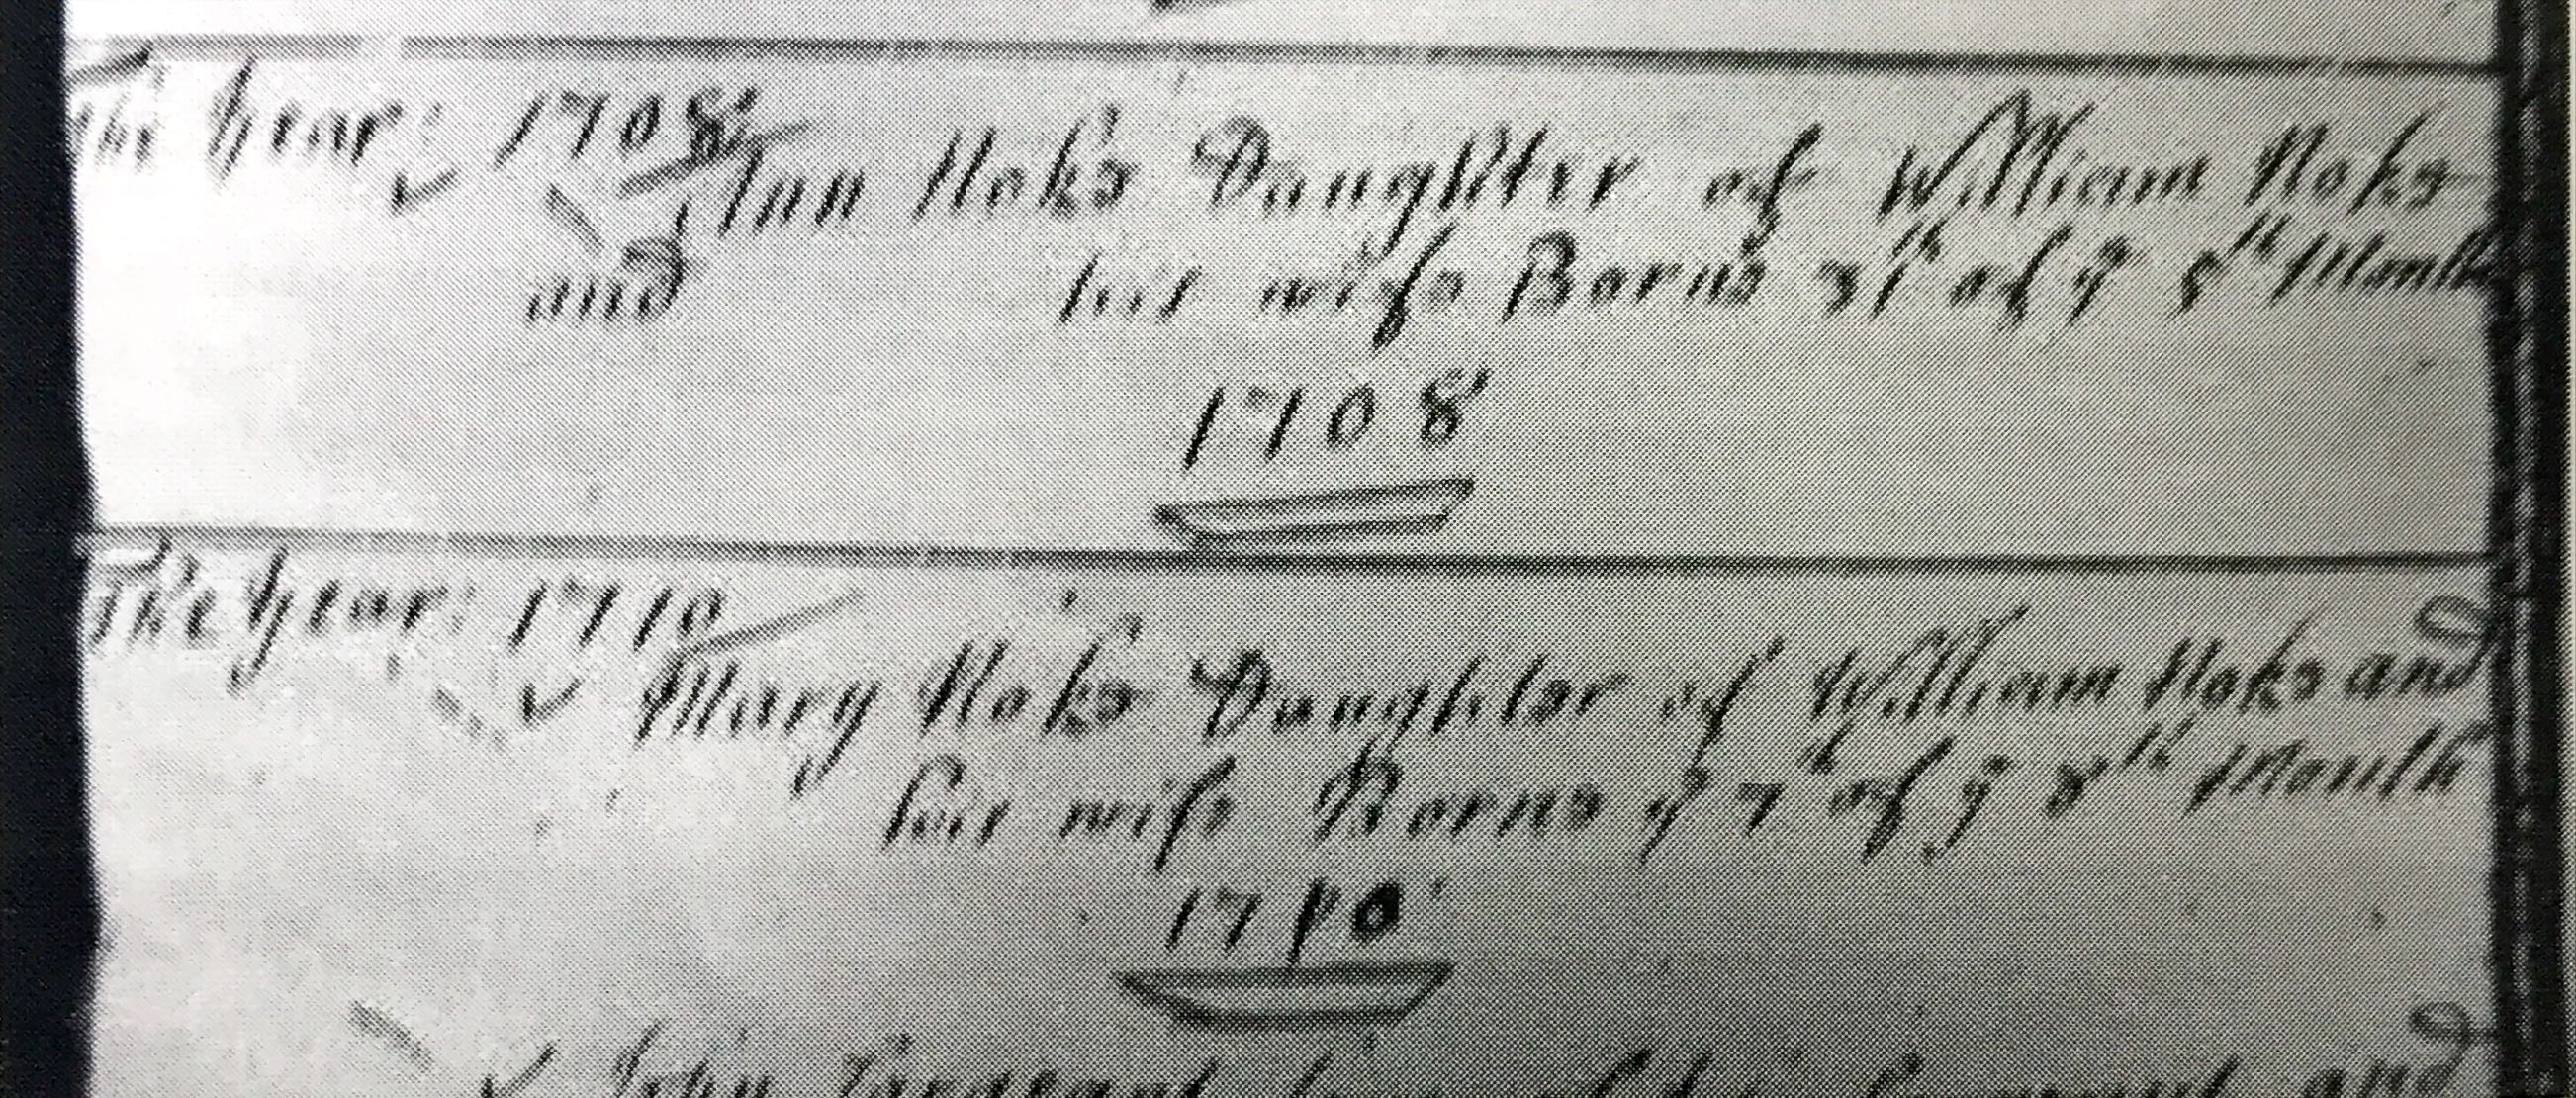 The Year: 1708
Ann Noks Daughter of William Noks
and his wife Borne 31 of ye 5th Month
1708
The Year: 1710
Mary Noks Daughter of William Noks and
his wife Borne ye 7th of ye 8th Month
1710
John and